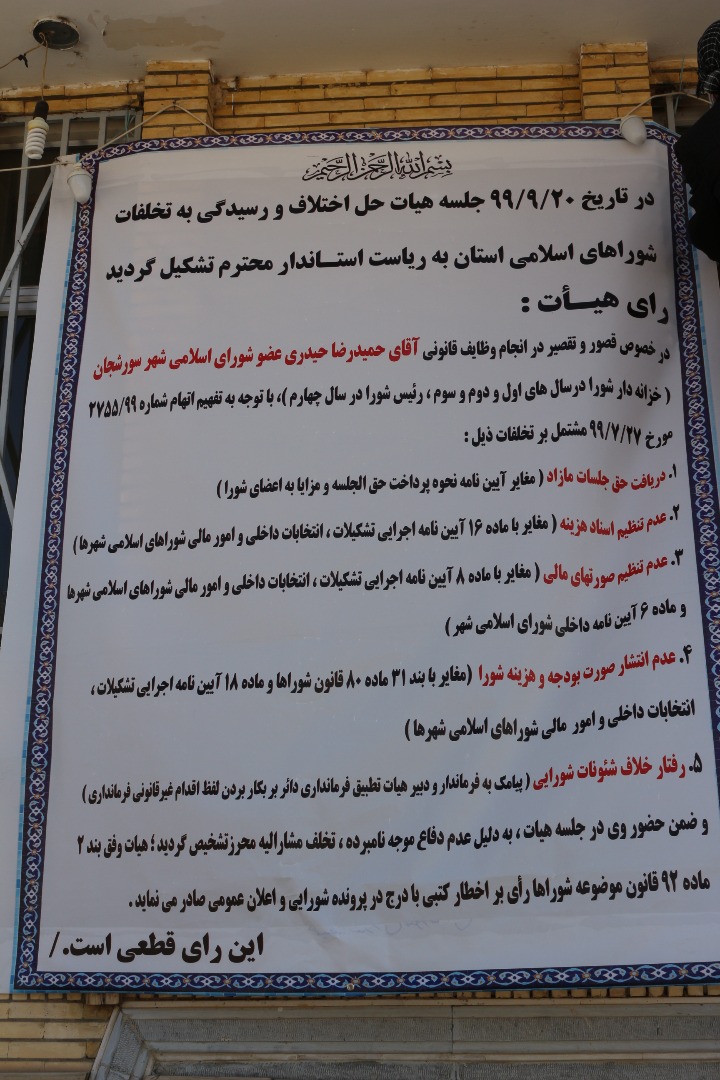 بسم الله الرحمن الرحیم
در تاریخ ۹۹/۹/۲۰ جلسه هیات حل اختلاف و رسیدگی به تخلفات
شوراهای اسلامی استان به ریاست استــاندار محترم تشکیل گردید
رای هیــأت :
در خصوص قصور و تقصیر در انجام وظایف قانونی آقای حمیدرضا حیدری عضو شورای اسلامی شهر سورشجان
( خزانه دار شورا درسال های اول و دوم و سوم ، رئیس شورا در سال چهارم )، با توجه به تفهیم اتهام شماره ۲۷۵۵/۹۹
مورخ ۹۹/۷/۲۷ مشتمل بر تخلفات ذیل :
۱. دریافت حق جلسات مازاد ( مغایر آیین نامه نحوه پرداخت حق الجلسه و مزایا به اعضای شورا )
۲. عدم تنظیم اسناد هزینه ( مغایر با ماده ۱۶ آیین نامه اجرایی تشکیلات ، انتخابات داخلی و امور مالی شوراهای اسلامی شهرها )
۳. عدم تنظیم صورتهای مالی ( مغایر با ماده ۸ آیین نامه اجرایی تشکیلات ، انتخابات داخلی و امور مالی شوراهای اسلامی شهرها
و ماده ۶ آیین نامه داخلی شورای اسلامی شهر )
۴. عدم انتشار صورت بودجه و هزینه شورا (مغایر با بند ۳۱ ماده ۸۰ قانون شوراها و ماده ۱۸ آیین نامه اجرایی تشکیلات ،
انتخابات داخلی و امور مالی شوراهای اسلامی شهرها )
۵. رفتار خلاف شئونات شورایی ( پیامک به فرماندار و دبیر هیات تطبیق فرمانداری دائر بر بکار بردن لفظ اقدام غیرقانونی فرمانداری )
و ضمن حضور وی در جلسه هیات ، به دلیل عدم دفاع موجه نامبرده ، تخلف مشارالیه محرزتشخیص گردید ؛ هیات وفق بند ۲
ماده ۹۲ قانون موضوعه شوراها رأی بر اخطار کتبی با درج در پرونده شورایی و اعلان عمومی صادر می نماید .
این رای قطعی است. /